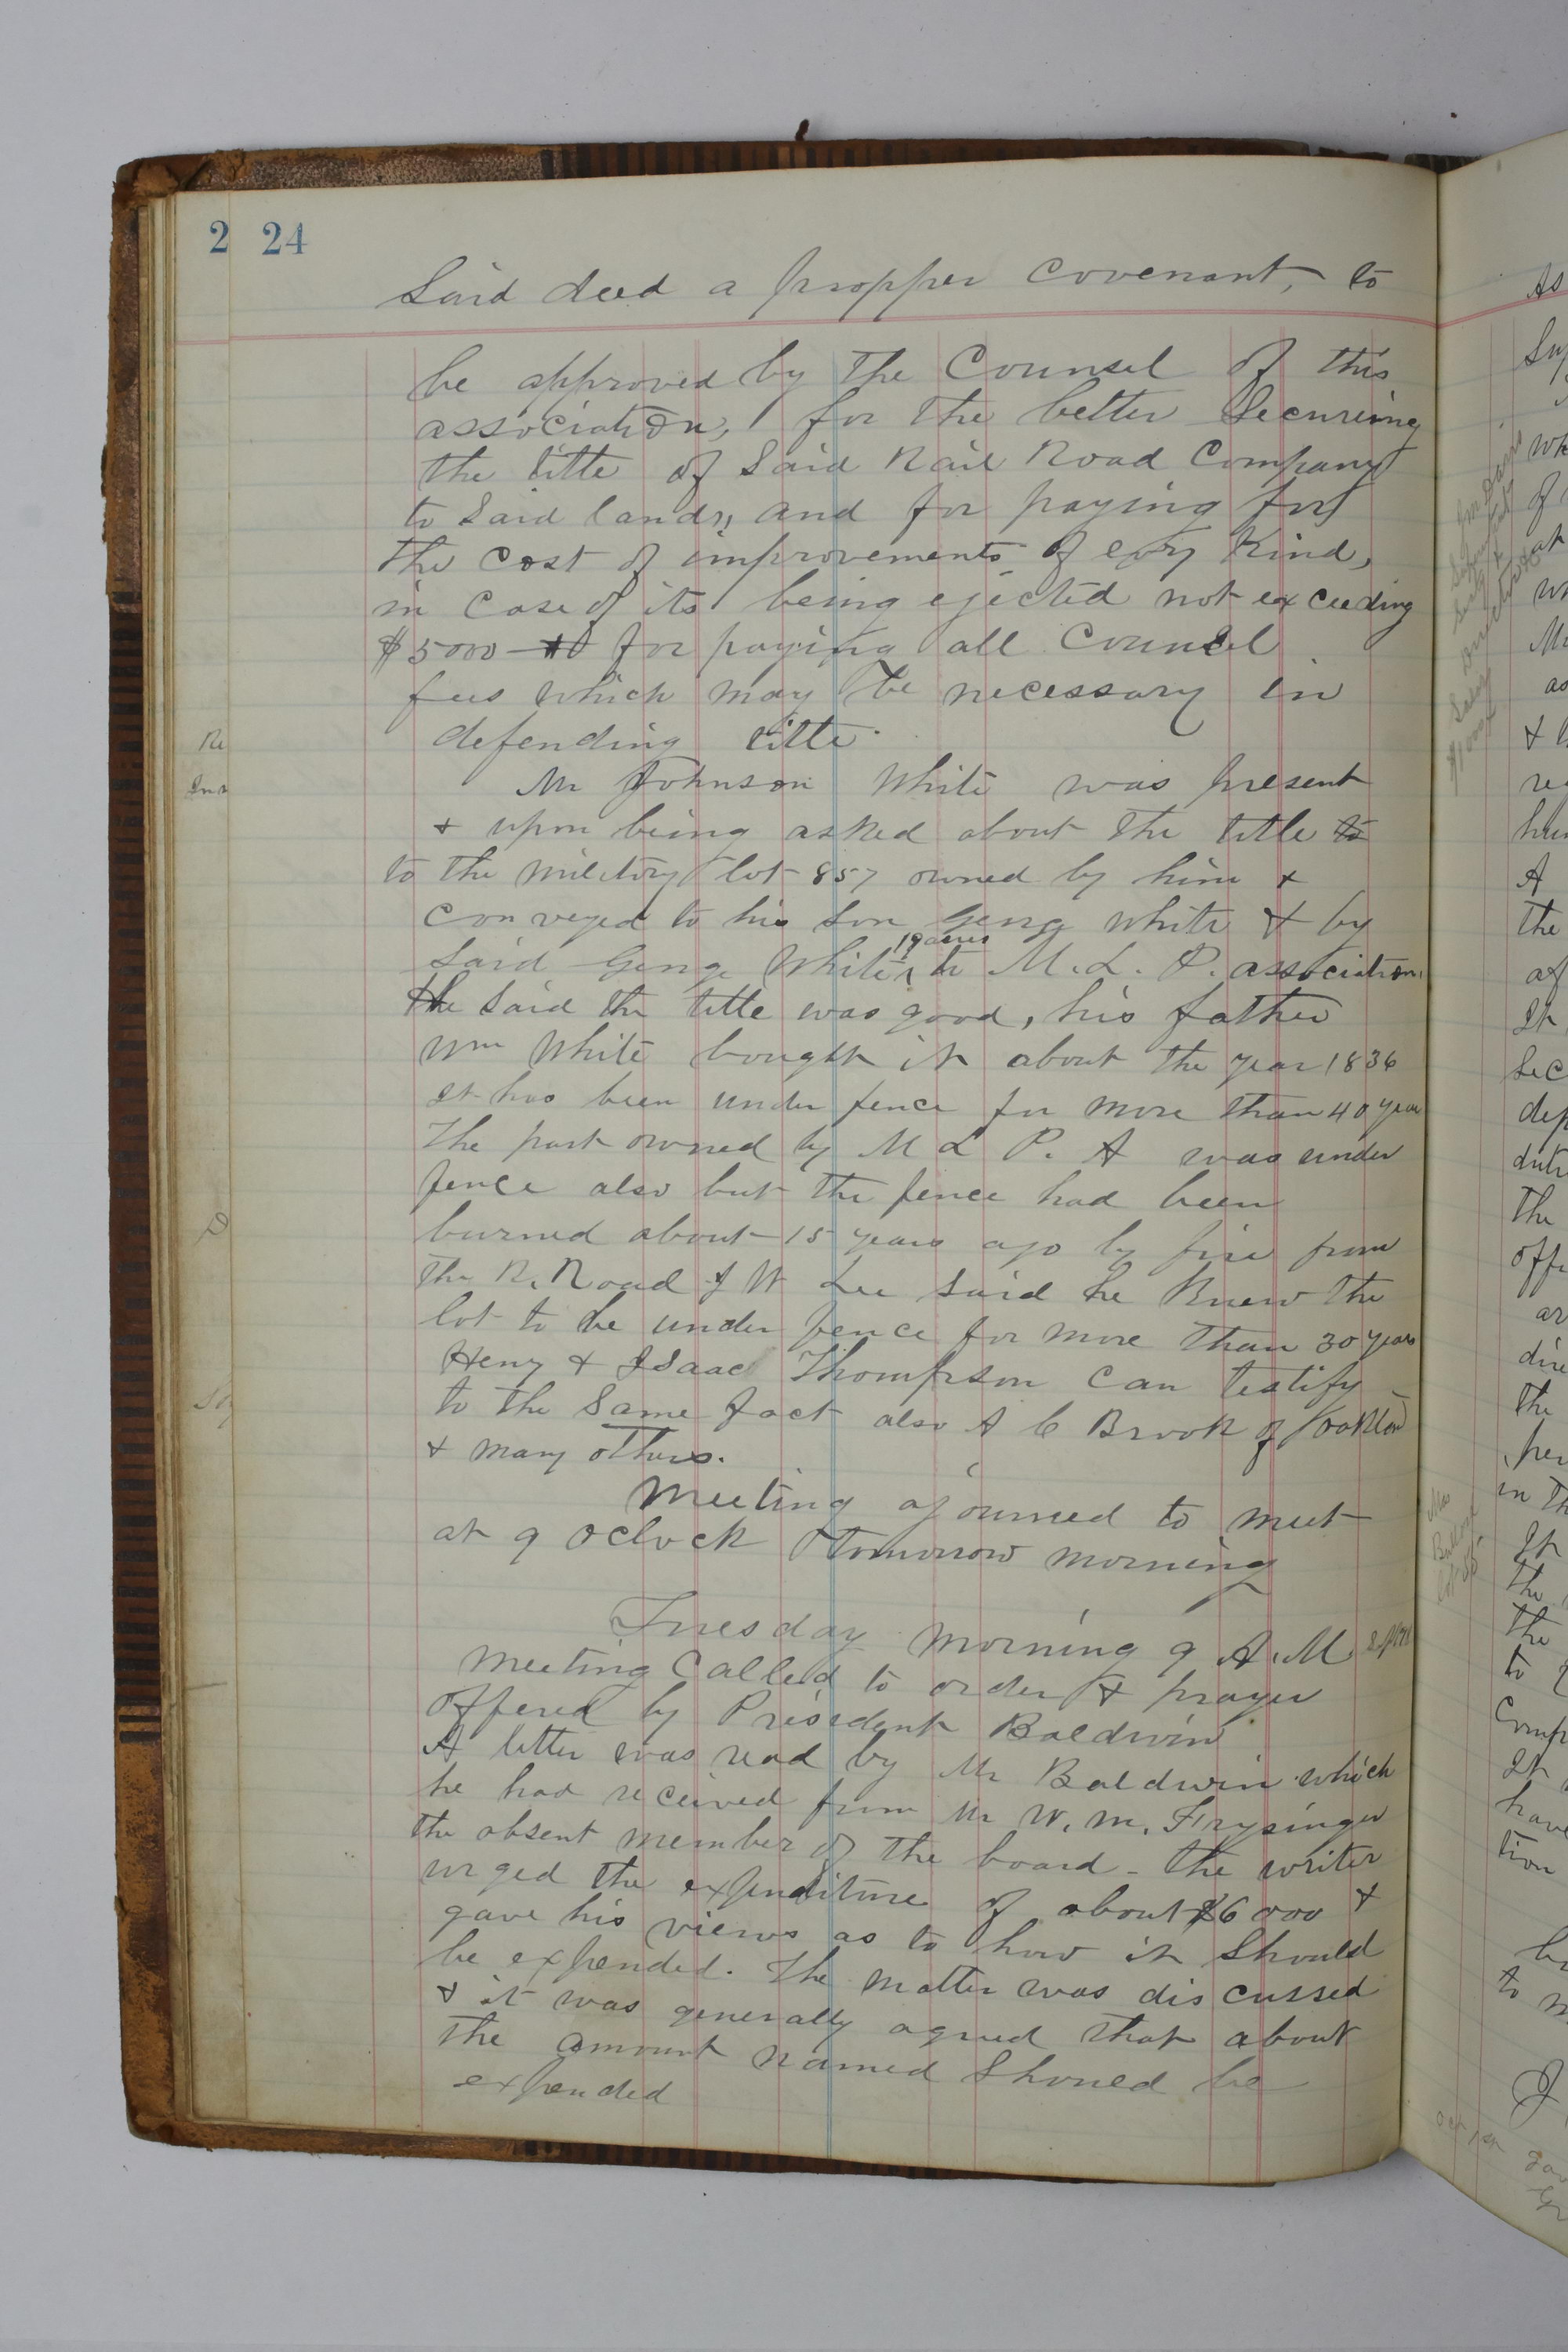 2 24
Said deed a propper covenant, to
be approved by the Counsel of this
association, for the better Secureing
the title of Said Rail Road Company
to Said lands, and for paying for
the cost of improvements of evry Kind,
in Case of its being ejected not exceeding
$5000 for paying all Counsel
fees which may be necessary in
defending title.
Mr Johnson White was present
& upon being asked about the title to
to the military lot 857 owned by him &
conveyed to his son Geng White & by
19 acres
Said Genge White to M. L. P. association.
He Said the title was good, his father
Wm White bought it about the year 1836
It has been under fence for more than 40 year
The part owned by M L P. A was under
fence also but the fence had been
burned about 15 years ago by fire from
the R. Road J W Lee Said he Knew the
lot to be under fence for more than 30 years
Henry & Isaac Thompson can testify
to the Same fact also A C Brook of
& many others.
Meeting ajourned to meet
at 9 oclock tomorrow morning
Tuesday morning 9 A. M
meeting Called to order & prayer
offered by President Baldwin
A letter was read by Mr Baldwin which
he had received from Mr W. M. Frysinger
the absent member of the board - the writer
urged the expenditure of about $6000 &
gave his views as to how it Should
be expended. The matter was discussed
& it was generally agreed that about
the amount named Should be
expended